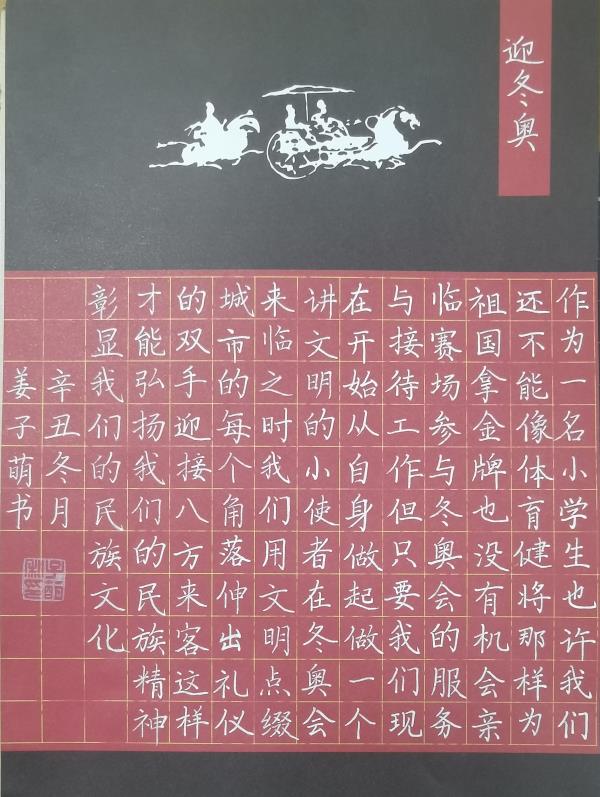 迎冬奥
作为一名小学生也许我们
还不能像体育健将那样为
祖国拿金牌也没有机会亲
临赛场参与冬奥会的服务
与接待工作但只要我们现
在开始从自身做起做一个
讲文明的小使者在冬奥会
来临之时我们用文明点缀
城市的每个角落伸出礼仪
的双手迎接八方来客这样
才能弘扬我们的民族精神
彰显我们的民族文化
辛丑冬月
姜子萌书